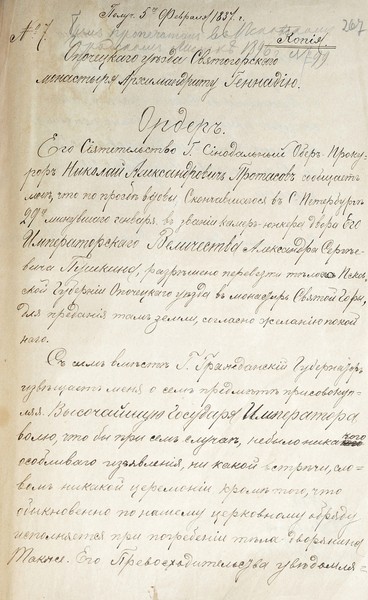 Полут. 5го Февраля 1837. г.
№ 7.
Копія.
267
Опочецкаго уѣзда Святогорскаго
монастыря Архимандриту Геннадію.
Ордеръ.
Его Сіятельство Г. Синодальный Оберъ-Проку-
роръ Николай Александровичъ Протасовъ сообщаетъ
мнѣ, что по прозьбѣ вдовы Скончавшагося въ С. Петербургѣ
29го минувшаго генваря, въ званіи камеръ-юнкера двора Его
Императорскаго Величества Александра Сергѣ-
евича Пушкина, разрѣшено перевезти тѣло его Псков-
ской Губерніи Опочецкаго уѣзда въ монастырь Святой Горы,
для преданія тамъ земли, согласно желанію покой
наго.
Съ симъ вмѣстѣ Г. Гражданскій Губернаторъ
извѣщаетъ меня о семъ предметѣ присовокуп-
ляя Высочайшую Государя Императора
волю, что бы при семъ случаѣ, небыло никакого
особливаго изъявленія, ни какой встрѣчи, сло-
вомъ никакой церемоніи кромѣ того, что
обыкновенно по нашему церковному обряду
исполняется при погребеніи тѣла дворянина
Такъ же Его Превосходительство увѣдомля=